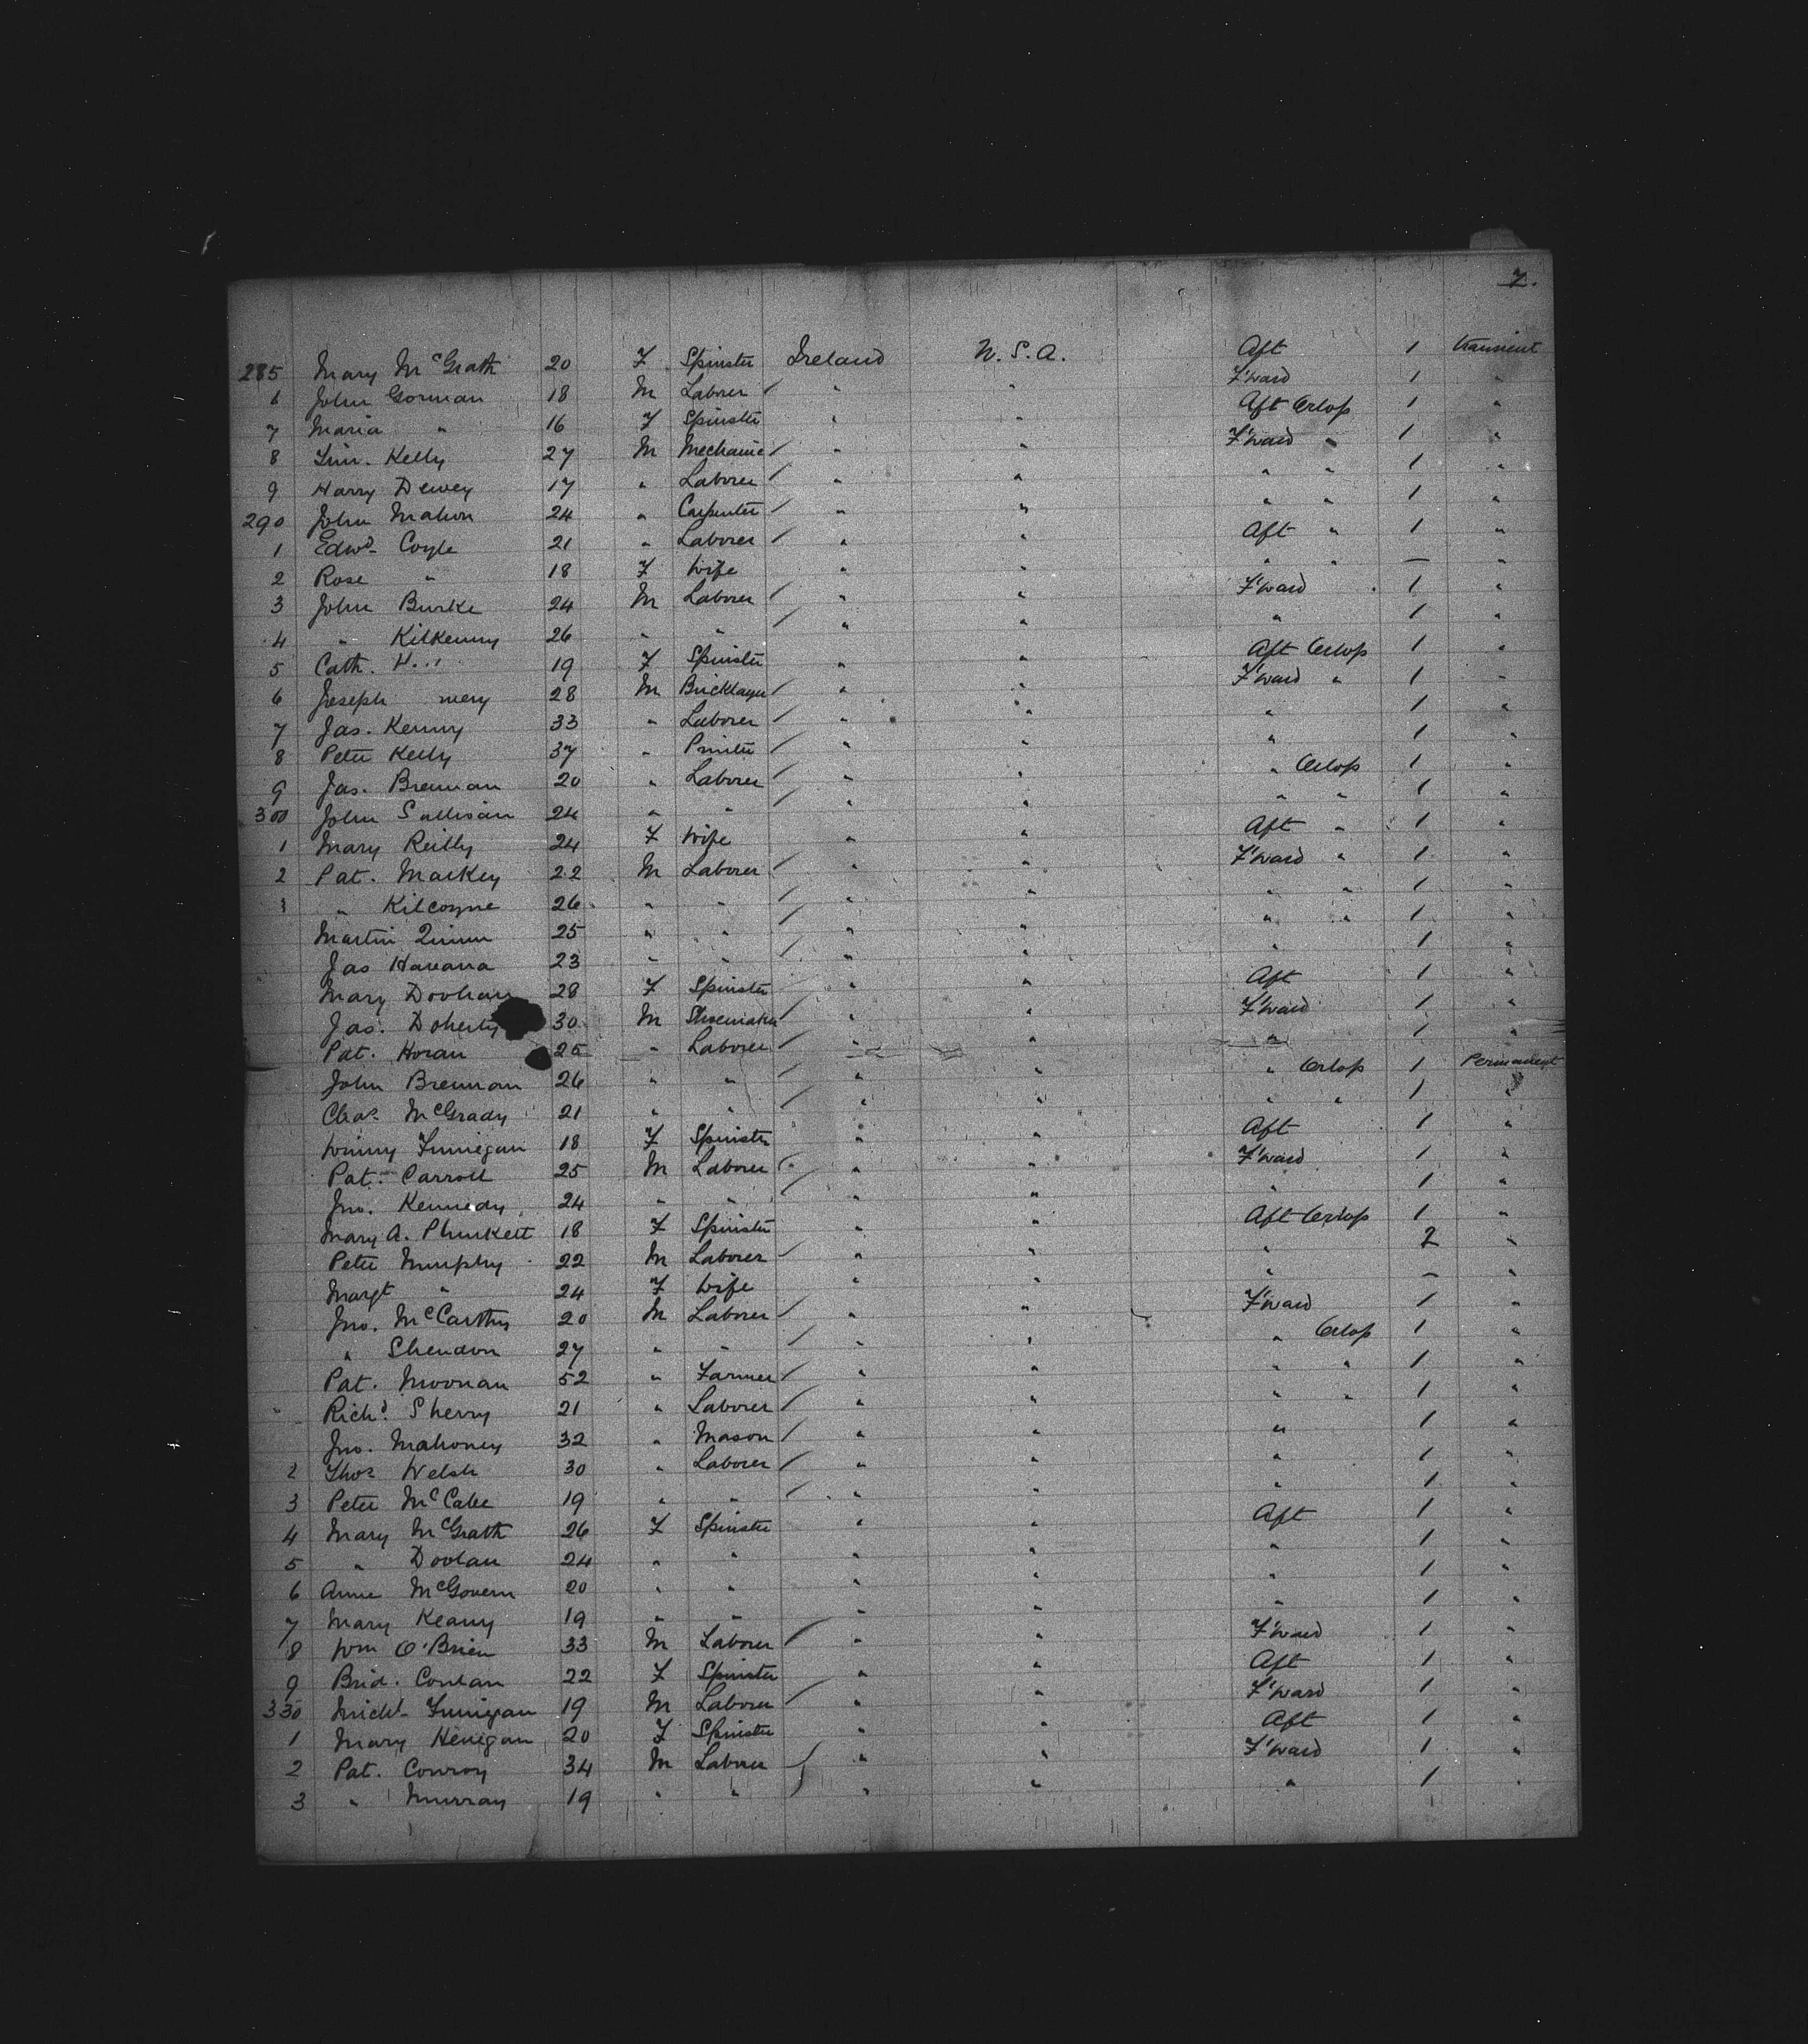 7.
285 Mary McGrath 20 F Spinster Ireland U.S.A. Aft 1 transient
6 John Gorman 18 M Laborer / " " F'ward 1 "
7 Maria " 16 F Spinster " " Aft Orlop 1 "
8 Tim. Kelly 27 M Mechanic / " " F'ward " 1 "
9 Harry Dewey 17 " Laborer / " " " " 1 "
290 John Mahon 24 " Carpenter / " " " " 1 "
1 Edwd. Coyle 21 " Laborer / " " Aft " 1 "
2 Rose " 18 F Wife " " " " — "
3 John Burke 24 M Laborer / " " F'ward 1 "
4 " Kilkenny 26 " " / " " " 1 "
5 Cath. H 19 F Spinster " " Aft Orlop 1 "
6 Joseph 28 M Bricklayer / " " F'ward " 1 "
7 Jas. Kenny 33 " Laborer / " " " 1 "
8 Peter Kelly 37 " Printer / " " " 1 "
9 Jas. Brennan 20 " Laborer / " " " Orlop 1 "
300 John Sullivan 24 " " / " " " " 1 "
1 Mary Reilly 24 F Wife " " Aft " 1 "
2 Pat. Markey 22 M Laborer / " " F'ward " 1 "
3 " Kilcoyne 26 " " / " " " " 1 "
Martin Quinn 25 " " / " " " " 1 "
Jas Havana 23 " " / " " " 1 "
Mary Doohan 28 F Spinster " " Aft 1 "
Jas. Doherty 30 M Shoemaker / " " F'ward 1 "
Pat. Horan 25 " Laborer / " " " 1 "
John Brennan 26 " " / " " " Orlop 1 Permanent
Chas. McGrady 21 " " / " " " " 1 "
Winny Finnegan 18 F Spinster " " Aft 1 "
Pat. Carroll 25 M Laborer / " " F'ward 1 "
Jno. Kennedy 24 " " / " " " 1 "
Mary A. Plunkett 18 F Spinster " " Aft Orlop 1 "
Peter Murphy 22 M Laborer / " " " 2 "
Margt " 24 F Wife " " " — "
Jno. McCarthy 20 M Laborer / " " F'ward 1 "
" Shendon 27 " " / " " " Orlop 1 "
Pat. Moonan 52 " Farmer / " " " " 1 "
Richd. Sherry 21 " Laborer / " " " " 1 "
Jno. Mahoney 32 " Mason / " " " 1 "
2 Thos Welsh 30 " Laborer / " " " 1 "
3 Peter McCabe 19 " " / " " " 1 "
4 Mary McGrath 26 F Spinster " " Aft 1 "
5 " Doolan 24 " " " " " 1 "
6 Anne McGovern 20 " " " " " 1 "
7 Mary Keany 19 " " " " " 1 "
8 Wm O'Brien 33 M Laborer / " " F'ward 1 "
9 Brid. Conlan 22 F Spinster " " Aft 1 "
330 Michl. Finnigan 19 M Laborer / " " F'ward 1 "
1 Mary Henigan 20 F Spinster " " Aft 1 "
2 Pat. Conroy 34 M Laborer / " " F'ward 1 "
3 " Murray 19 " " / " " " 1 "